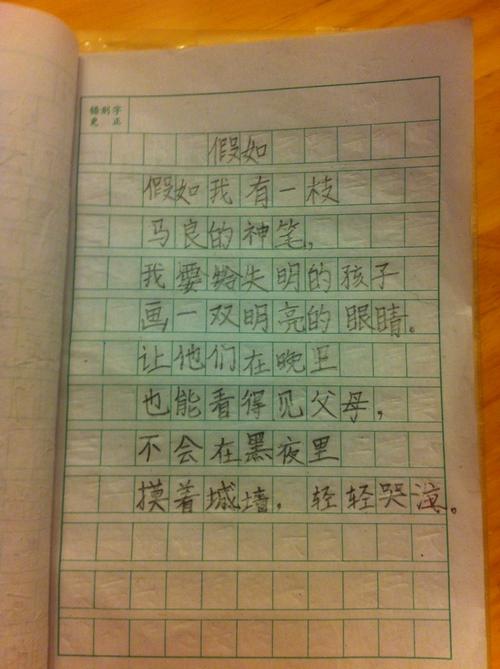 错别字
更正
假如
假如我有一枝
马良的神笔,
我要给失明的孩子
画一双明亮的眼睛。
让他们在晚里
也能看得见父母,
不会在黑夜里
摸着城墙. 轻轻哭泣。